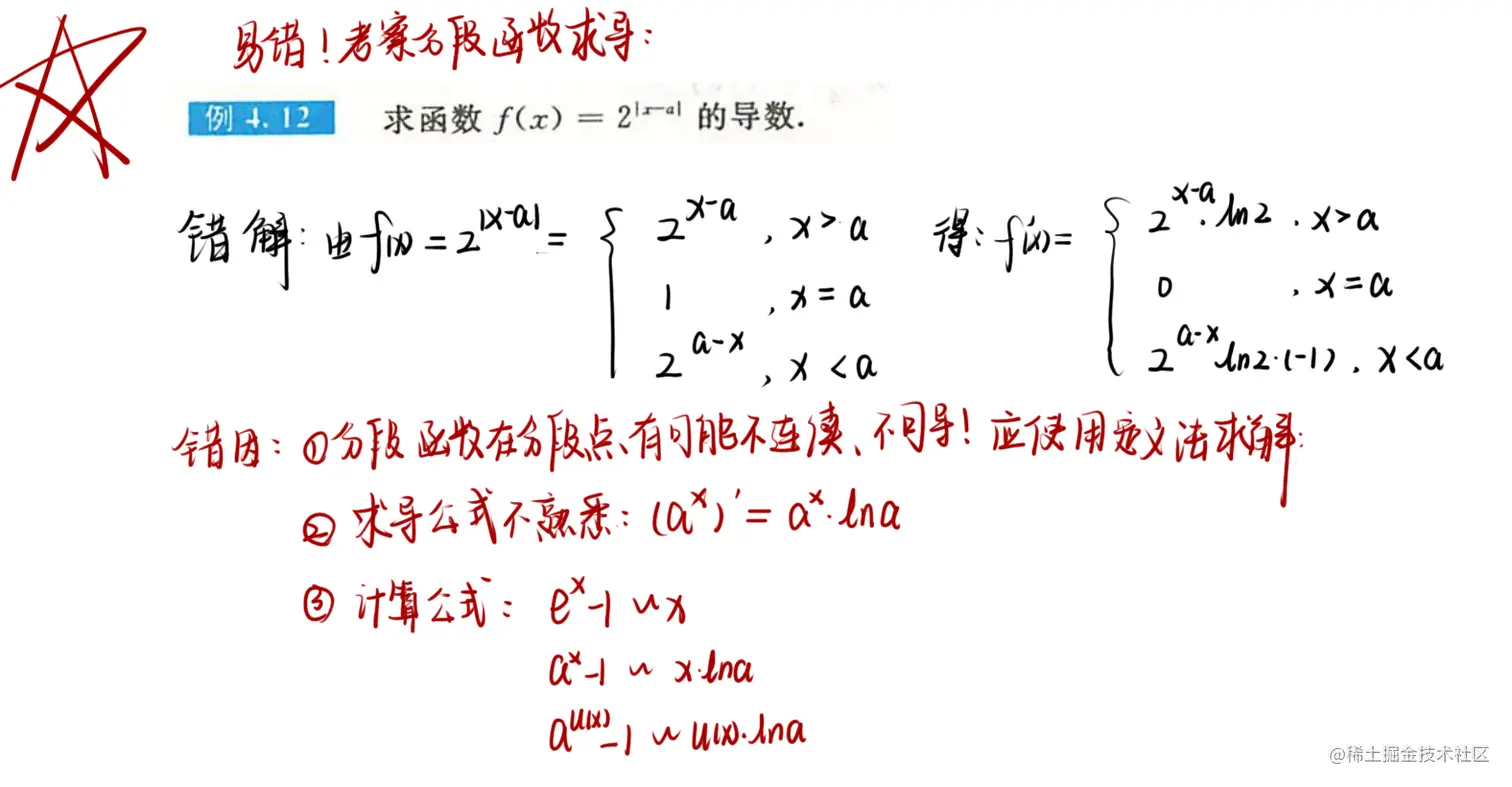 易错！考察分段函数求导：
例 4.12 求函数 f(x) = 2^|x-a| 的导数.
错解：由 f(x) = 2^|x-a| = { 2^(x-a) , x > a 得：f'(x) = { 2^(x-a)·ln2 , x > a
1 , x = a 0 , x = a
2^(a-x) , x < a 2^(a-x) ln2·(-1) , x < a
错因：① 分段函数在分段点有可能不连续、不可导！应使用定义法求解：
② 求导公式不熟悉：(a^x)' = a^x·lna
③ 计算公式：e^x-1 ~ x
a^x-1 ~ x·lna
a^u(x)-1 ~ u(x)·lna
@稀土掘金技术社区